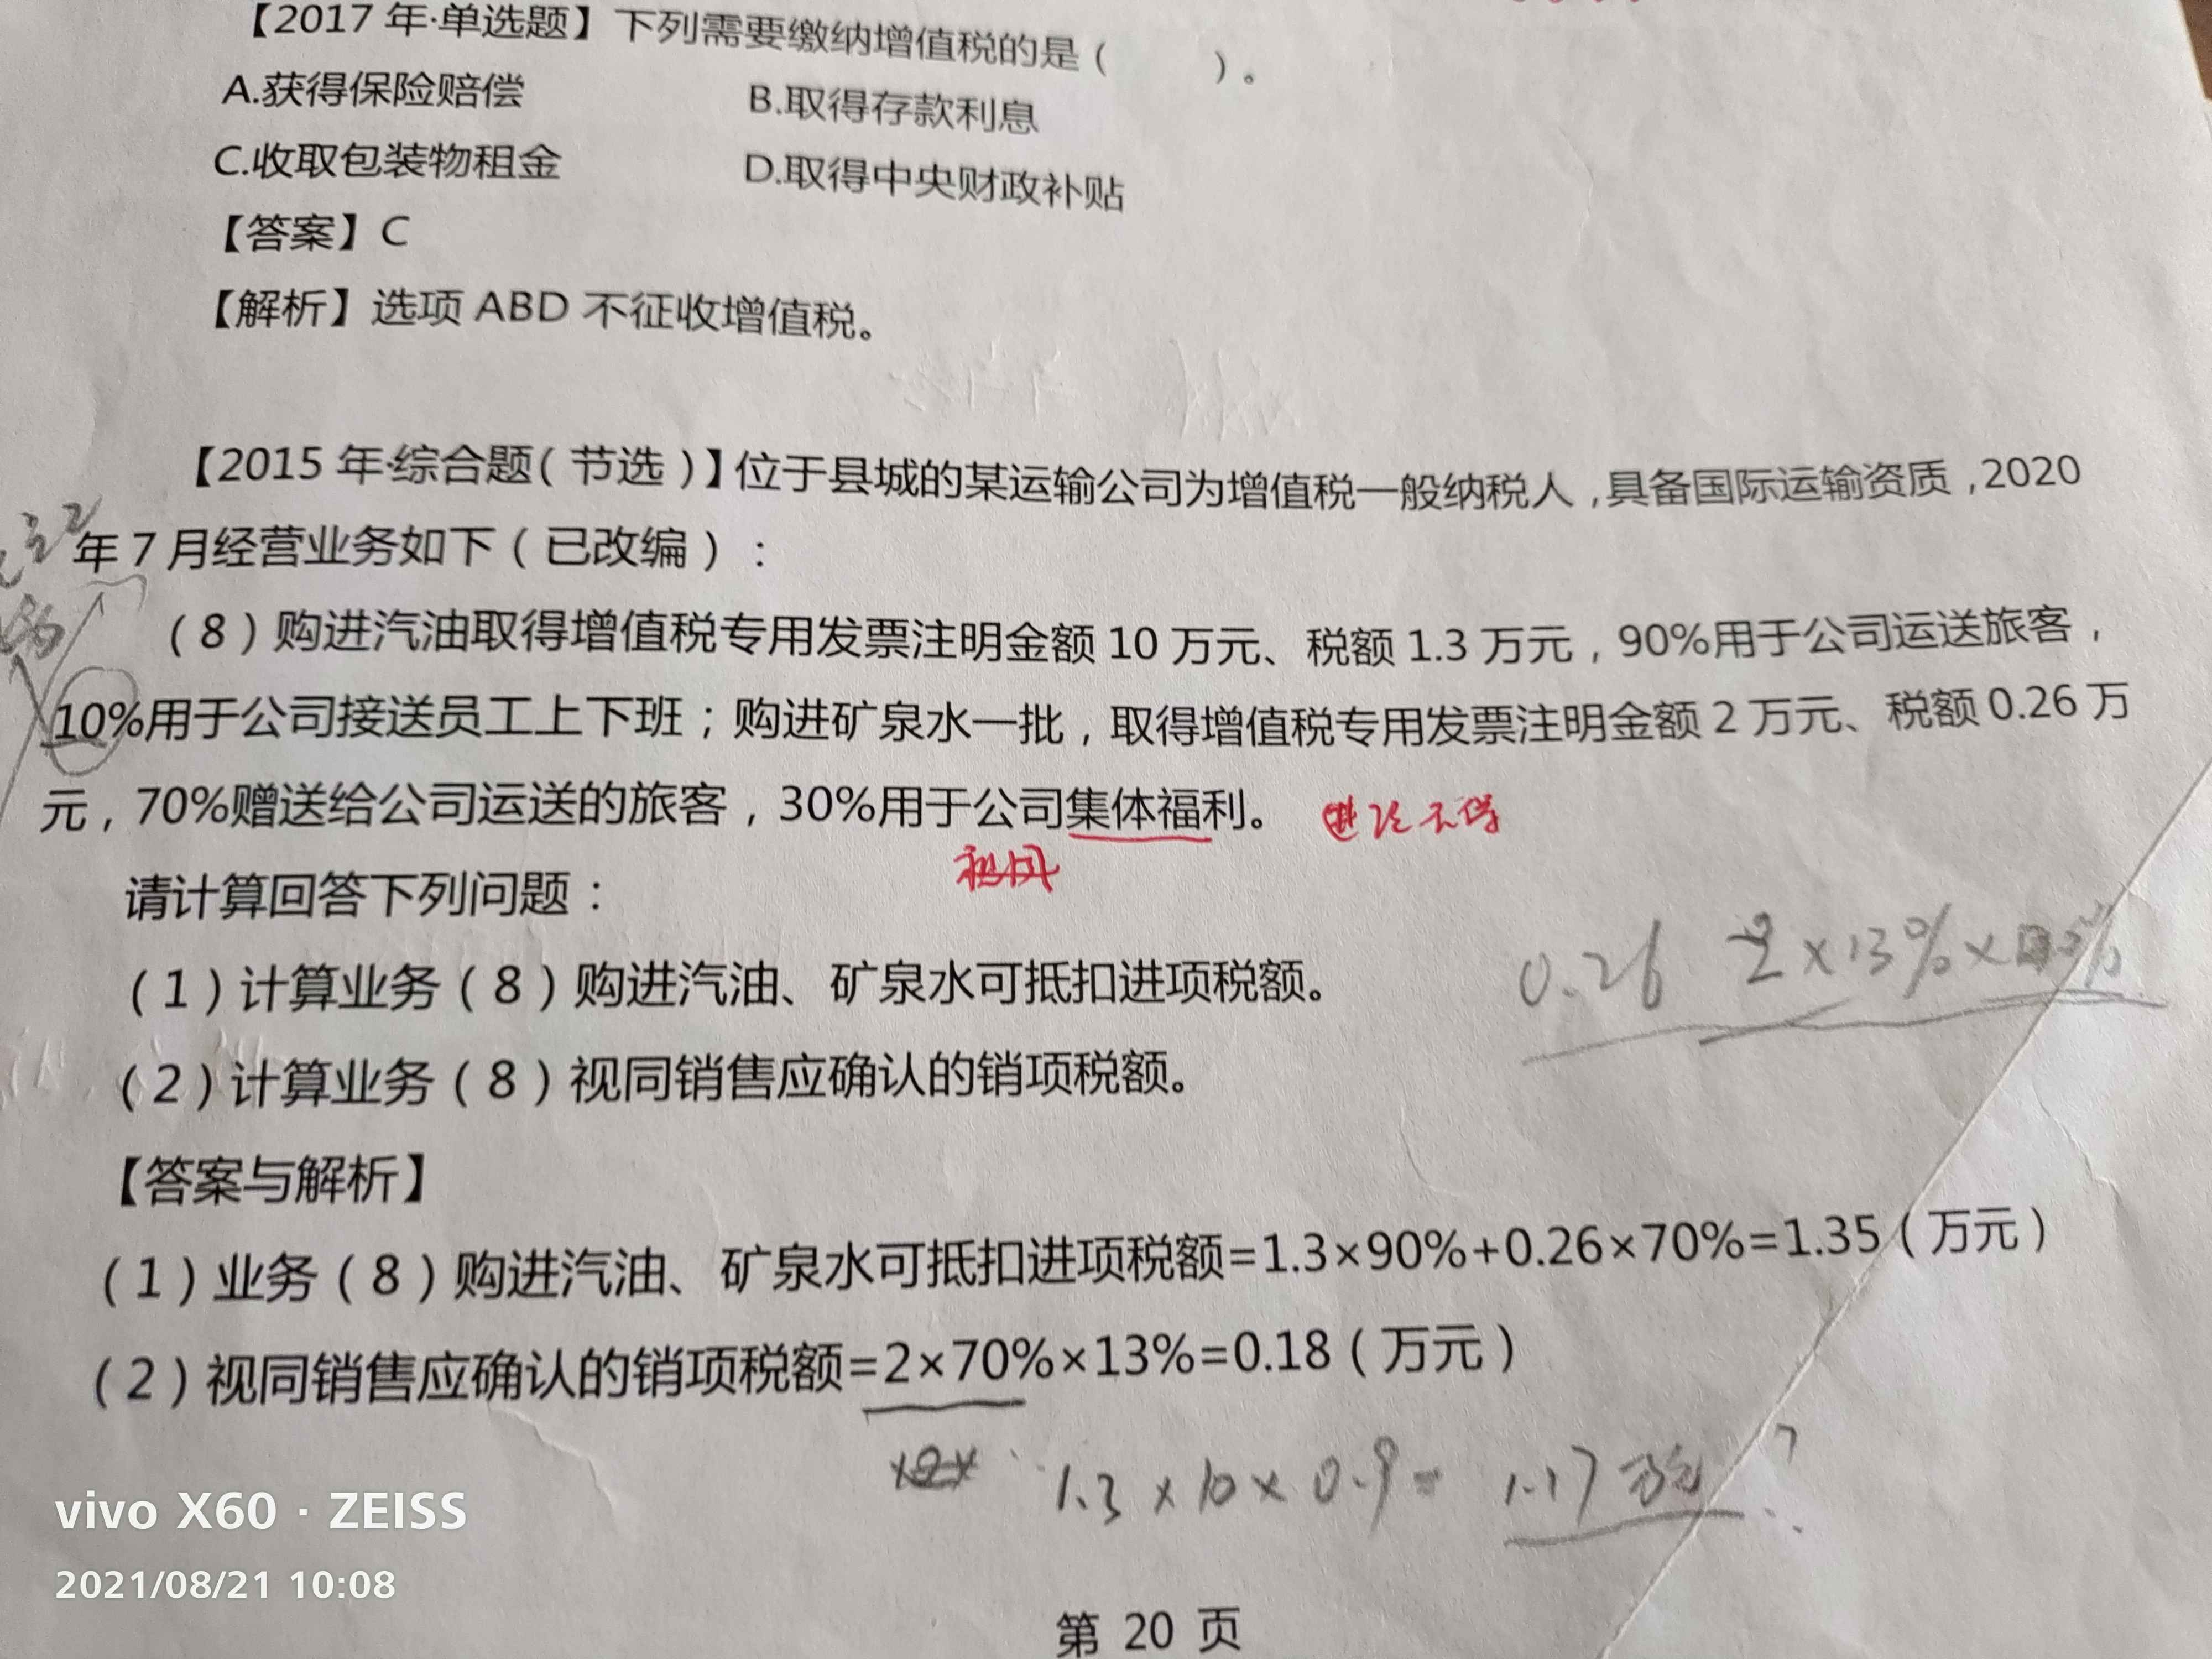 【2017 年·单选题】下列需要缴纳增值税的是（　　）。
A.获得保险赔偿　　B.取得存款利息
C.收取包装物租金　　D.取得中央财政补贴
【答案】C
【解析】选项 ABD 不征收增值税。
【2015 年·综合题（节选）】位于县城的某运输公司为增值税一般纳税人，具备国际运输资质，2020
年 7 月经营业务如下（已改编）：
（8）购进汽油取得增值税专用发票注明金额 10 万元、税额 1.3 万元，90%用于公司运送旅客，
10%用于公司接送员工上下班；购进矿泉水一批，取得增值税专用发票注明金额 2 万元、税额 0.26 万
元，70%赠送给公司运送的旅客，30%用于公司集体福利。
请计算回答下列问题：
0.26
（1）计算业务（8）购进汽油、矿泉水可抵扣进项税额。
（2）计算业务（8）视同销售应确认的销项税额。
【答案与解析】
（1）业务（8）购进汽油、矿泉水可抵扣进项税额=1.3×90%+0.26×70%=1.35（万元）
（2）视同销售应确认的销项税额=2×70%×13%=0.18（万元）
1.3×10×0.9= 1.17万元？
vivo X60 · ZEISS
2021/08/21 10:08
第 20 页